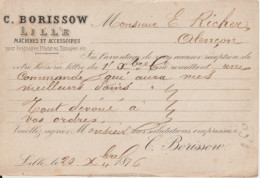 C. BORISSOW
LILLE
MACHINES ET ACCESSOIRES
pour Filatures, Tissages, etc.
Monsieur E. Richer
Alençon
J'ai l'avantage de vous accuser réception de
votre lettre du 1er Xbre me remettant une
commande qui aura mes
meilleurs soins
Tout dévoué à
vos ordres.
Veuillez agréer Monsieur mes salutations empressées
C. Borissow
Lille, le 20 Xbre 1876